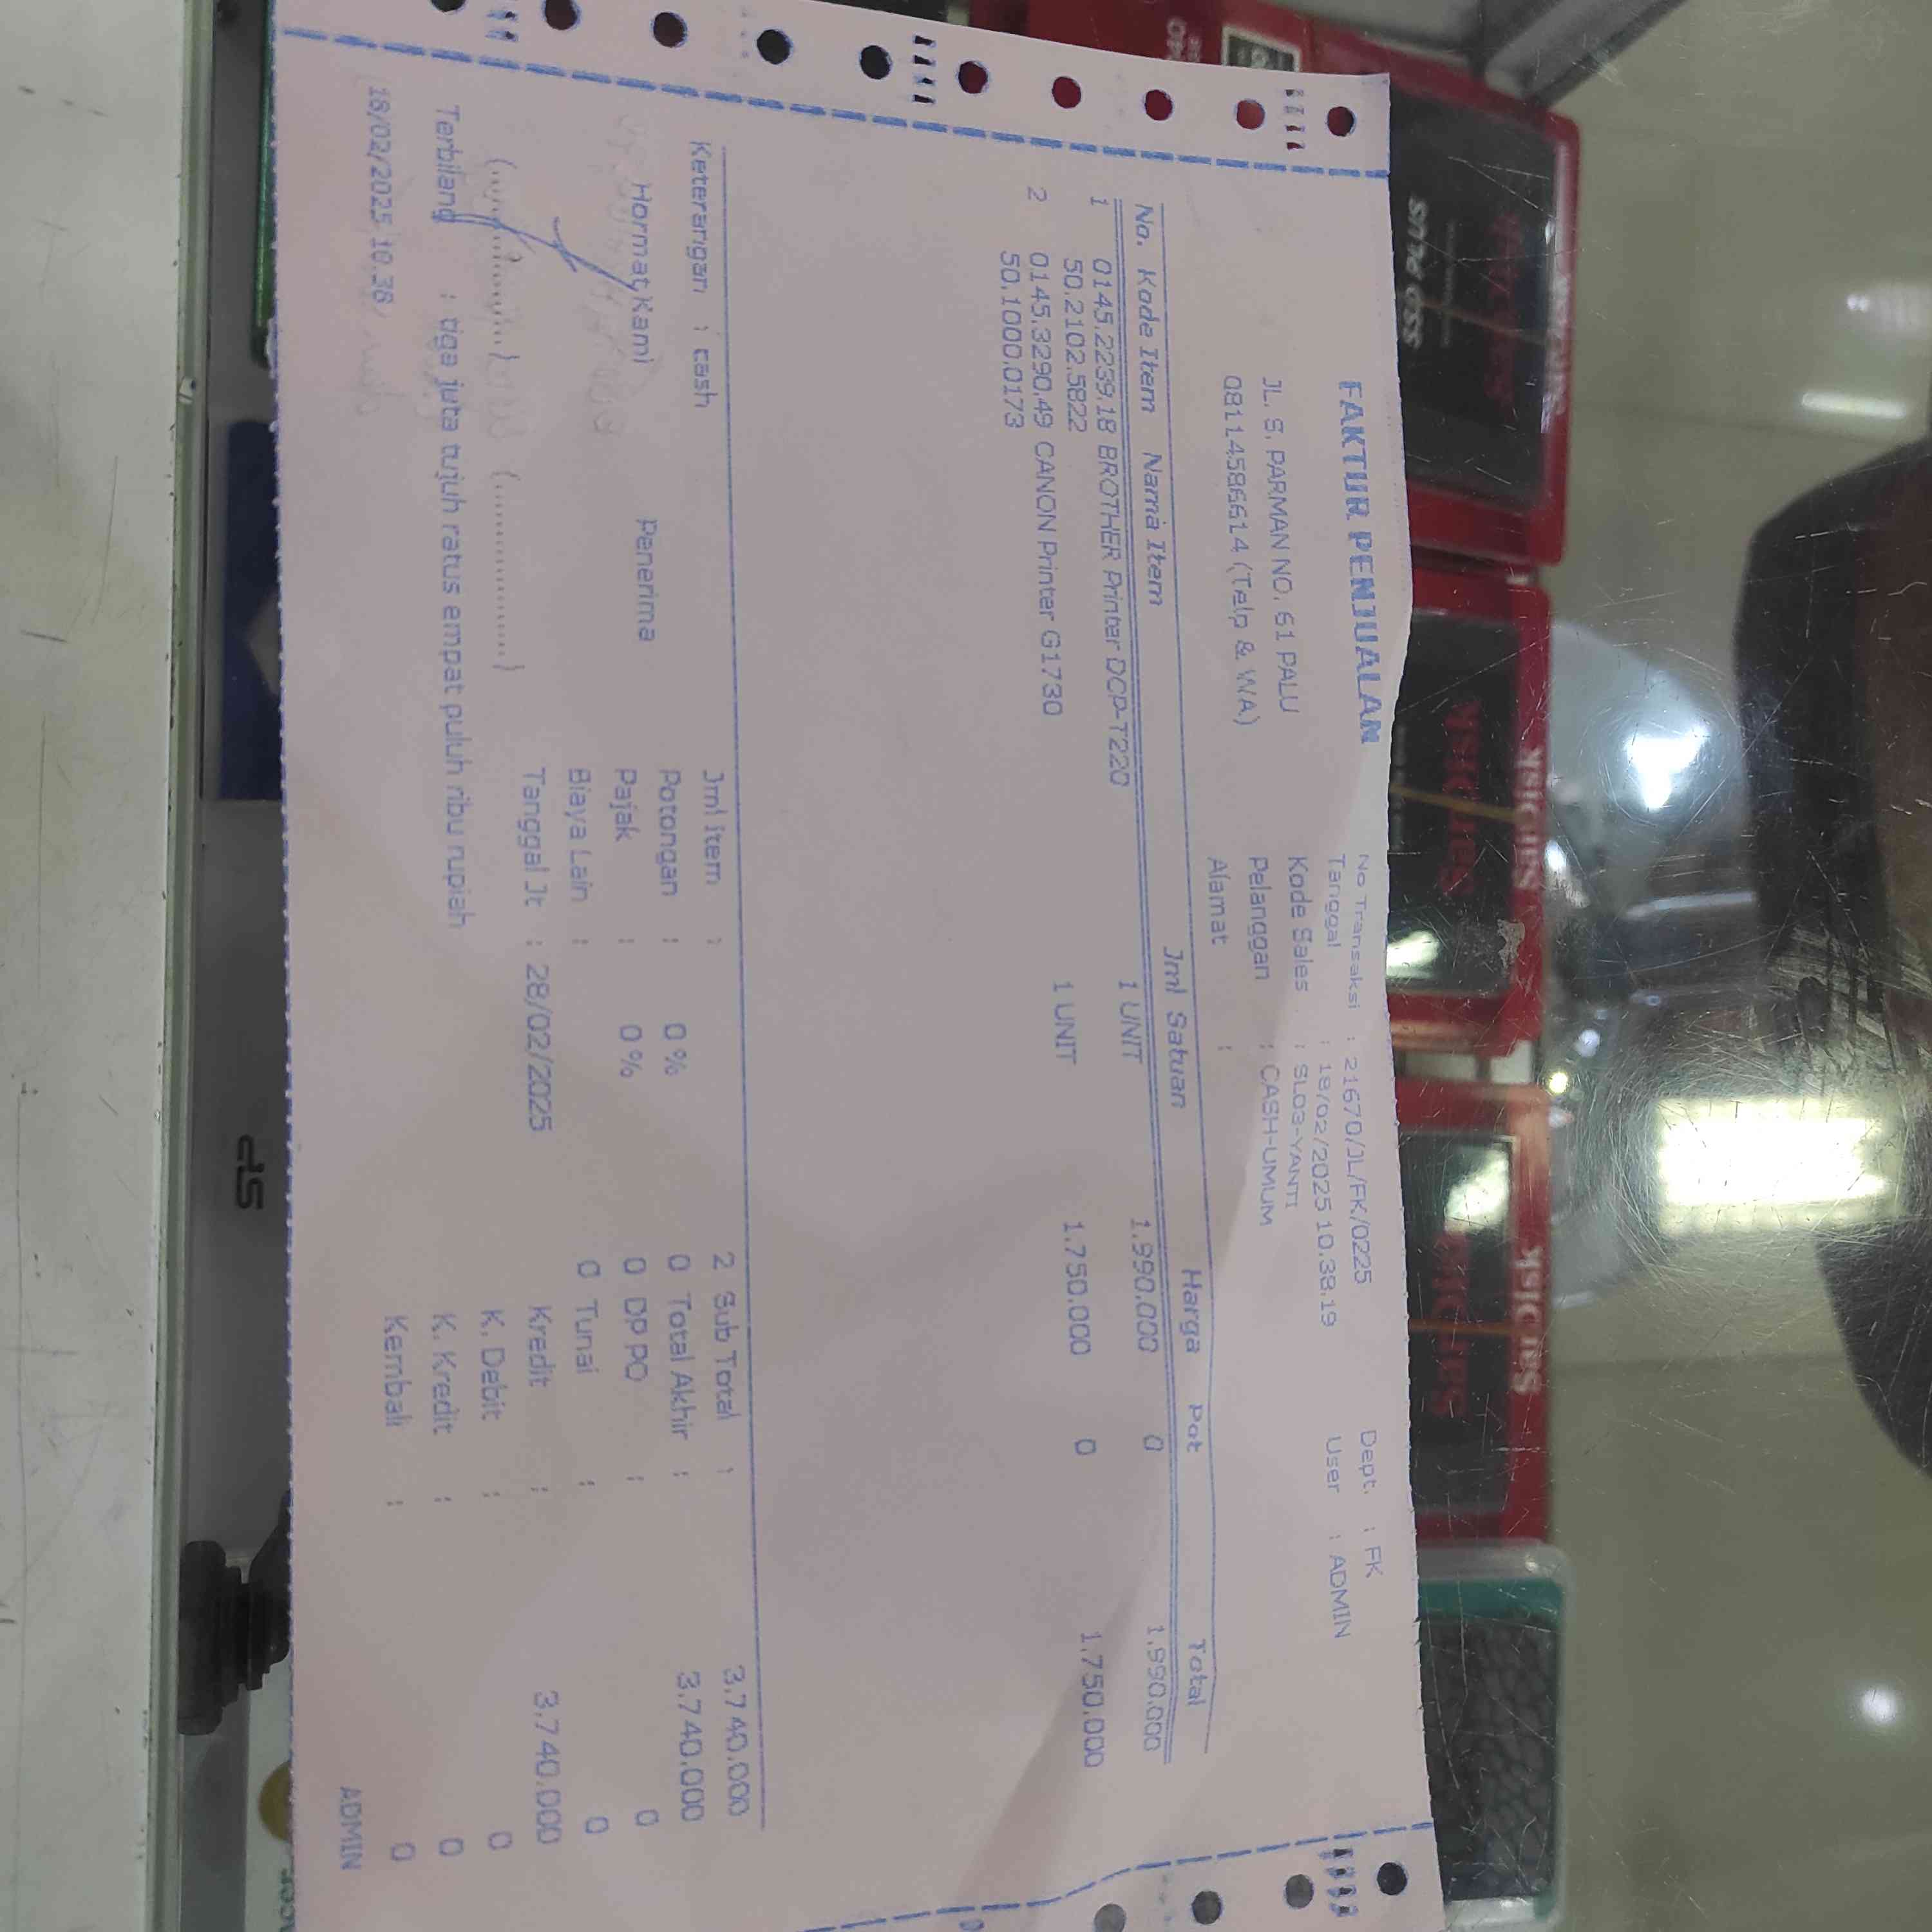 FAKTUR PENJUALAN
JL. S. PARMAN NO. 61 PALU
08114586614 (Telp & WA)
No Transaksi : 21670/JL/FK/0225
Tanggal : 18/02/2025 10.38.19
Kode Sales : SL03-YANTI
Pelanggan : CASH-UMUM
Alamat :
Dept. : FK
User : ADMIN
No. Kode Item Nama Item Jml Satuan Harga Pot Total
1 0145.2239.18 BROTHER Printer DCP-T220 1 UNIT 1.990.000 0 1.990.000
50.2102.5822
2 0145.3290.49 CANON Printer G1730 1 UNIT 1.750.000 0 1.750.000
50.1000.0173
Keterangan : cash
Hormat Kami
Penerima
(.................) (.................)
Jml item : 2
Potongan : 0 % 0
Pajak : 0 % 0
Biaya Lain : 0
Tanggal Jt : 28/02/2025
Sub Total : 3.740.000
Total Akhir : 3.740.000
DP PO : 0
Tunai : 0
Kredit : 3.740.000
K. Debit : 0
K. Kredit : 0
Kembali : 0
Terbilang : tiga juta tujuh ratus empat puluh ribu rupiah
18/02/2025 10.38
ADMIN
SanDisk
SSD PLUS
SanDisk
SanDisk
SanDisk
SanDisk